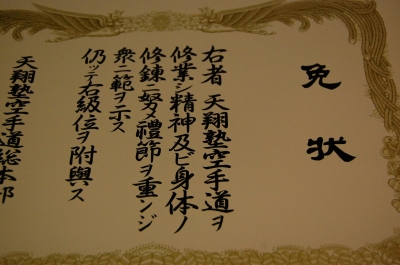 免状
右者 天翔塾空手道ヲ
修業シ精神及ビ身体ノ
修錬ニ努メ禮節ヲ重ンジ
衆ニ範ヲ示ス
仍ッテ右級位ヲ附與ス
天翔塾空手道総本部